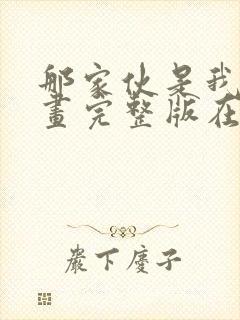 那家伙是我
畫完整版在
嚴下慶子